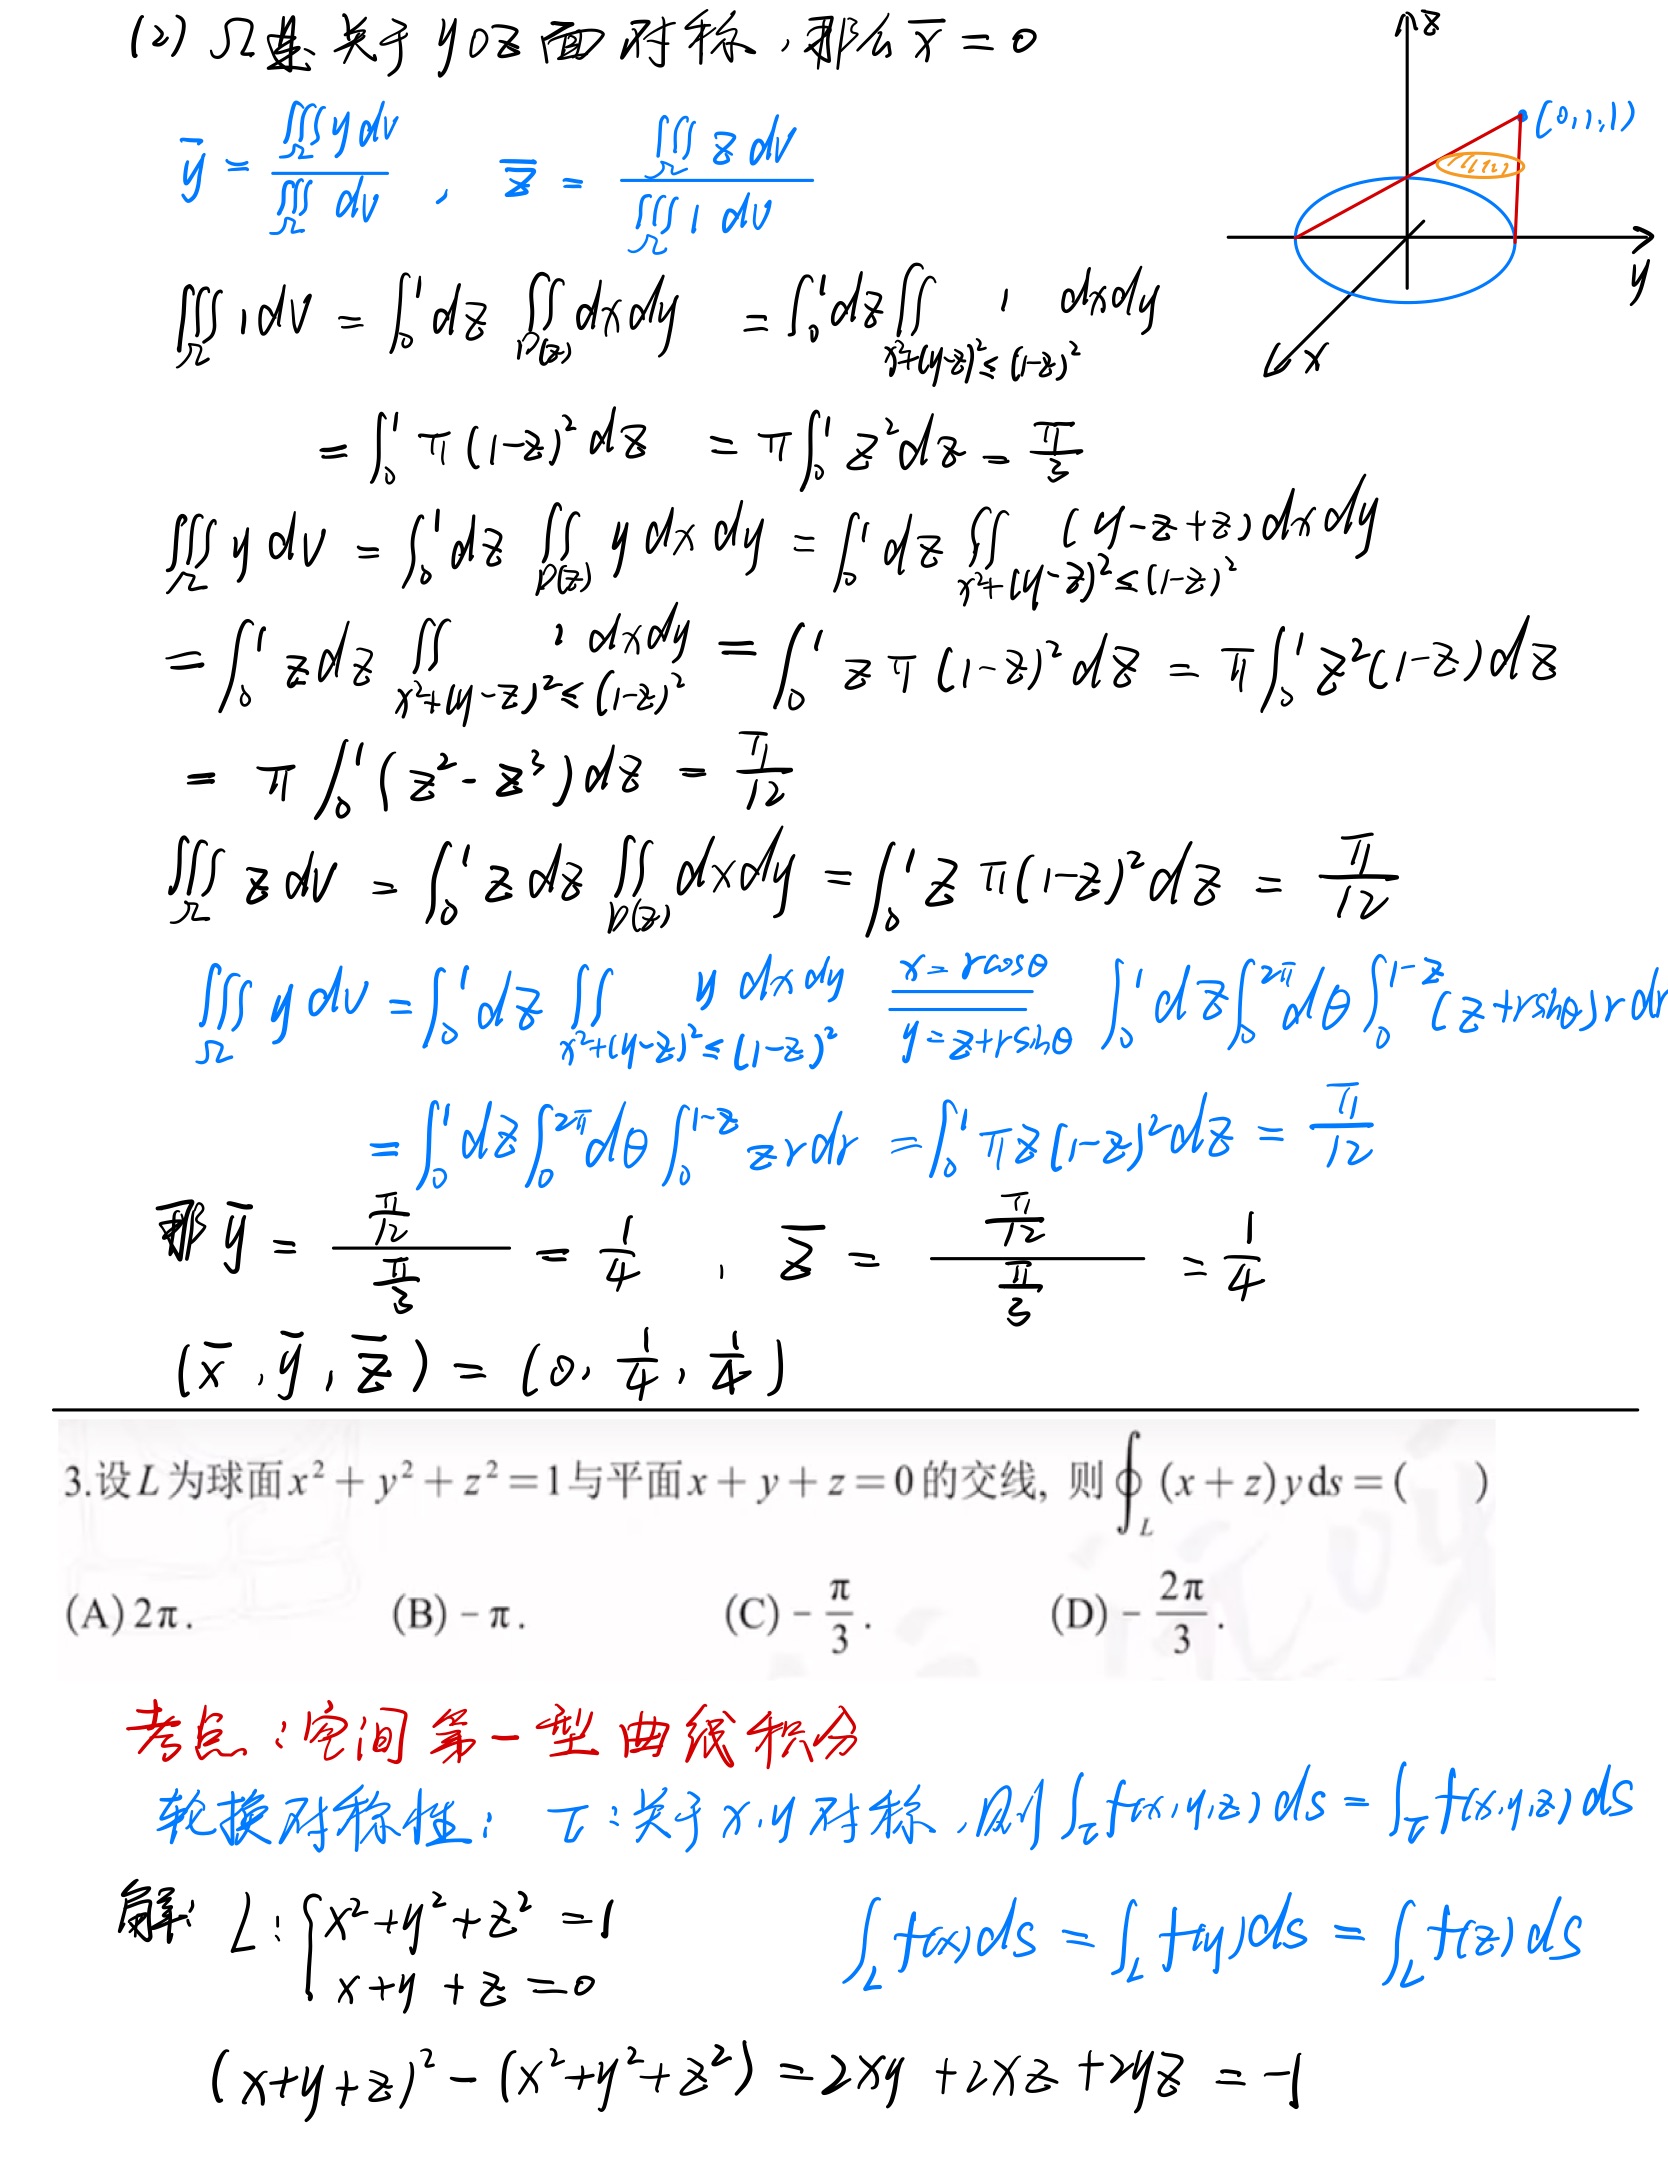 (2) Ω是关于yoz面对称,那么 x̄ = 0
z
(0,1,1)
y
x
ȳ = ∭_Ω y dv / ∭_Ω dv , z̄ = ∭_Ω z dv / ∭_Ω 1 dv
∭_Ω 1 dv = ∫_0^1 dz ∬_{D(z)} dxdy = ∫_0^1 dz ∬_{x²+(y-z)²≤(1-z)²} 1 dxdy
= ∫_0^1 π(1-z)² dz = π∫_0^1 z² dz = π/3
∭_Ω y dv = ∫_0^1 dz ∬_{D(z)} y dx dy = ∫_0^1 dz ∬_{x²+(y-z)²≤(1-z)²} (y-z+z) dx dy
= ∫_0^1 z dz ∬_{x²+(y-z)²≤(1-z)²} 1 dxdy = ∫_0^1 z π(1-z)² dz = π∫_0^1 z²(1-z) dz
= π∫_0^1 (z²-z³) dz = π/12
∭_Ω z dv = ∫_0^1 z dz ∬_{D(z)} dxdy = ∫_0^1 z π(1-z)² dz = π/12
∭_Ω y dv = ∫_0^1 dz ∬_{x²+(y-z)²≤(1-z)²} y dx dy x=rcosθ y=z+rsinθ ∫_0^1 dz ∫_0^{2π} dθ ∫_0^{1-z} (z+rsinθ) r dr
= ∫_0^1 dz ∫_0^{2π} dθ ∫_0^{1-z} z r dr = ∫_0^1 πz(1-z)² dz = π/12
那 ȳ = (π/12)/(π/3) = 1/4 , z̄ = (π/12)/(π/3) = 1/4
(x̄, ȳ, z̄) = (0, 1/4, 1/4)
3.设L为球面x²+y²+z²=1与平面x+y+z=0的交线, 则∮_L (x+z)y ds=( )
(A) 2π. (B) -π. (C) -π/3. (D) -2π/3.
考点:空间第一型曲线积分
轮换对称性: τ:关于x,y对称,则∫_τ f(x,y,z) ds = ∫_τ f(x,y,z) ds
解: L: { x²+y²+z²=1
x+y+z=0
∫_L f(x) ds = ∫_L f(y) ds = ∫_L f(z) ds
(x+y+z)² - (x²+y²+z²) = 2xy + 2xz + 2yz = -1